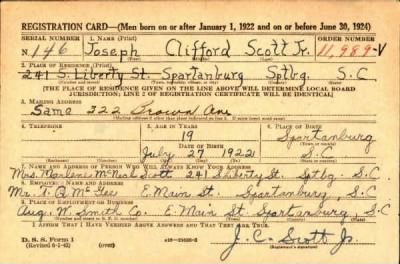 REGISTRATION CARD—(Men born on or after January 1, 1922 and on or before June 30, 1924)
SERIAL NUMBER 1. NAME (Print) ORDER NUMBER
N 146 Joseph Clifford Scott Jr. 11,989-V
(First) (Middle) (Last)
2. PLACE OF RESIDENCE (Print)
241 S. Liberty St. Spartanburg Sptbg. S.C
[THE PLACE OF RESIDENCE GIVEN ON THE LINE ABOVE WILL DETERMINE LOCAL BOARD
JURISDICTION; LINE 2 OF REGISTRATION CERTIFICATE WILL BE IDENTICAL]
3. MAILING ADDRESS
Same 322 Ave
4. TELEPHONE 5. AGE IN YEARS 6. PLACE OF BIRTH
19 Spartanburg
DATE OF BIRTH
July 27 1922 S.C
7. NAME AND ADDRESS OF PERSON WHO WILL ALWAYS KNOW YOUR ADDRESS
Mrs. Marlene McNeal Scott 241 S Liberty St. Sptbg. S.C
8. EMPLOYER'S NAME AND ADDRESS
Mr. T. R. McGee E. Main St. Spartanburg, S.C
9. PLACE OF EMPLOYMENT OR BUSINESS
Aug. W. Smith Co. E. Main St. Spartanburg, S.C.
I AFFIRM THAT I HAVE VERIFIED ABOVE ANSWERS AND THAT THEY ARE TRUE.
D. S. S. Form 1
(Revised 6-1-42)
J. C. Scott Jr.